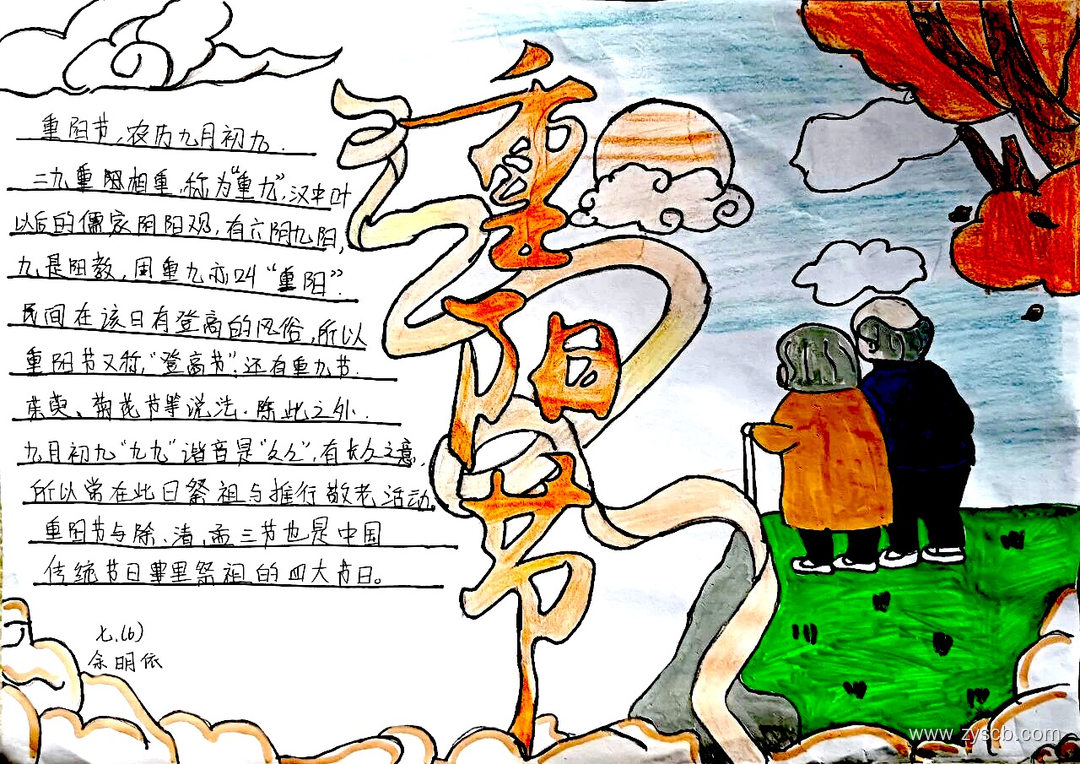 重阳节
重阳节,农历九月初九.
二九重阳相重,称为“重九”,汉中叶
以后的儒家阴阳观,有六阴九阳,
九是阳数,固重九亦叫“重阳”.
民间在该日有登高的风俗,所以
重阳节又称,“登高节”.还有重九节.
茱萸、菊花节等说法.除此之外.
九月初九“九九”谐音是“久久”,有长久之意,
所以常在此日祭祖与推行敬老活动.
重阳节与除、清、盂三节也是中国
传统节日里祭祖的四大节日。
七.(6)
余明依
www.zyscb.com